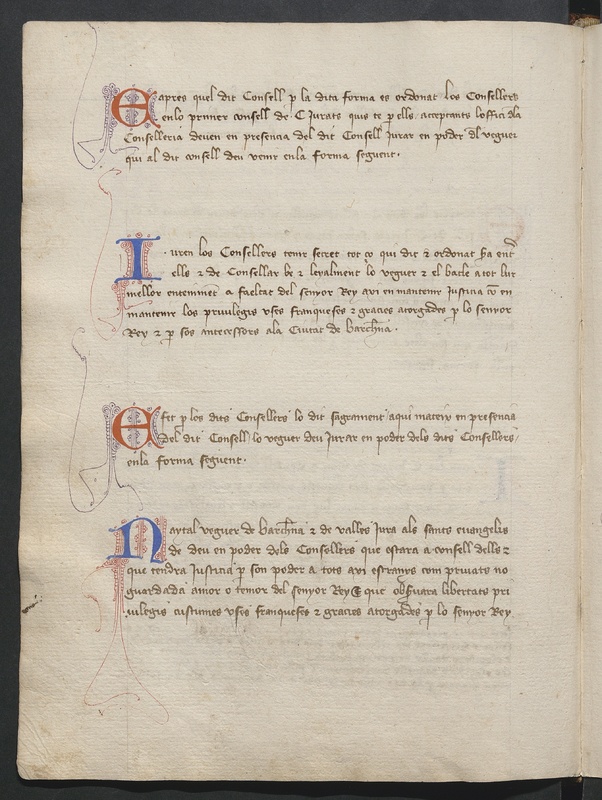 E apres quel dit Consell p la dita forma es ordonat los Consellers
enlo primer consell de C Jurats quis te p ells acceptants loffici dla
Conselleria deuen en presencia del dit Consell Jurar en poder dl veguer
qui al dit consell deu venir enla forma seguent.
I uren los Consellers tenir secret tot ço qui dit ⁊ ordonat sia ent
ells ⁊ de Consellar be ⁊ leyalment lo veguer ⁊ el batle a tot lur
mellor enteniment a faeltat del senyor Rey axi en mantenir Justicia com en
mantenir los priuilegis vses franqueses ⁊ gracies atorgades p lo senyor
Rey ⁊ p sos antecessors ala Ciutat de barchna.
E fet p los dits Consellers lo dit sagrament aqui mateix en presencia
del dit Consell lo veguer deu Jurar en poder dels dits Consellers,
enla forma seguent.
N aytal veguer de barchna ⁊ de valles Jura als sants euangelis
de deu en poder dels Consellers que estara a consell dells ⁊
que tendra Justicia p son poder a tots axi estranys com priuats no
guardada amor o temor del senyor Rey E que obseruara libertats pri
uilegis custumes vses franqueses ⁊ gracies atorgades p lo senyor Rey